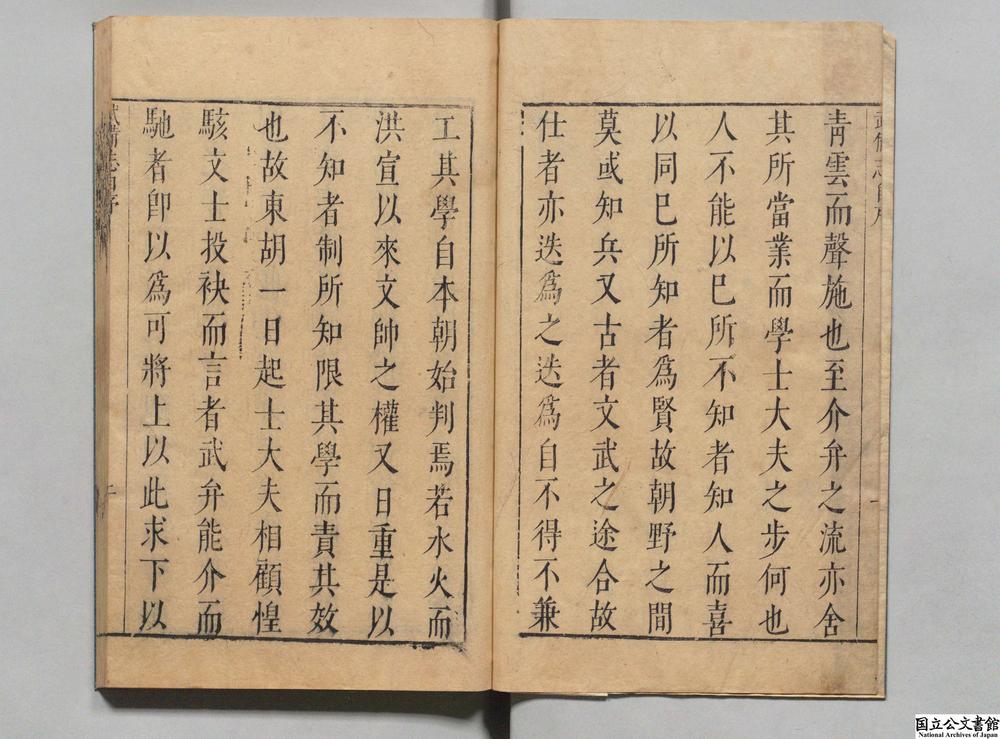 青雲而聲施也至介弁之流亦舍
其所當業而學士大夫之步何也
人不能以巳所不知者知人而喜
以同巳所知者爲賢故朝野之間
莫或知兵又古者文武之途合故
仕者亦迭爲之迭爲自不得不兼
工其學自本朝始判焉若水火而
洪宣以來文帥之權又日重是以
不知者制所知限其學而責其效
也故東胡一日起士大夫相顧惶
駭文士投袂而言者武弁能介而
馳者卽以爲可將上以此求下以
国立公文書館
National Archives of Japan